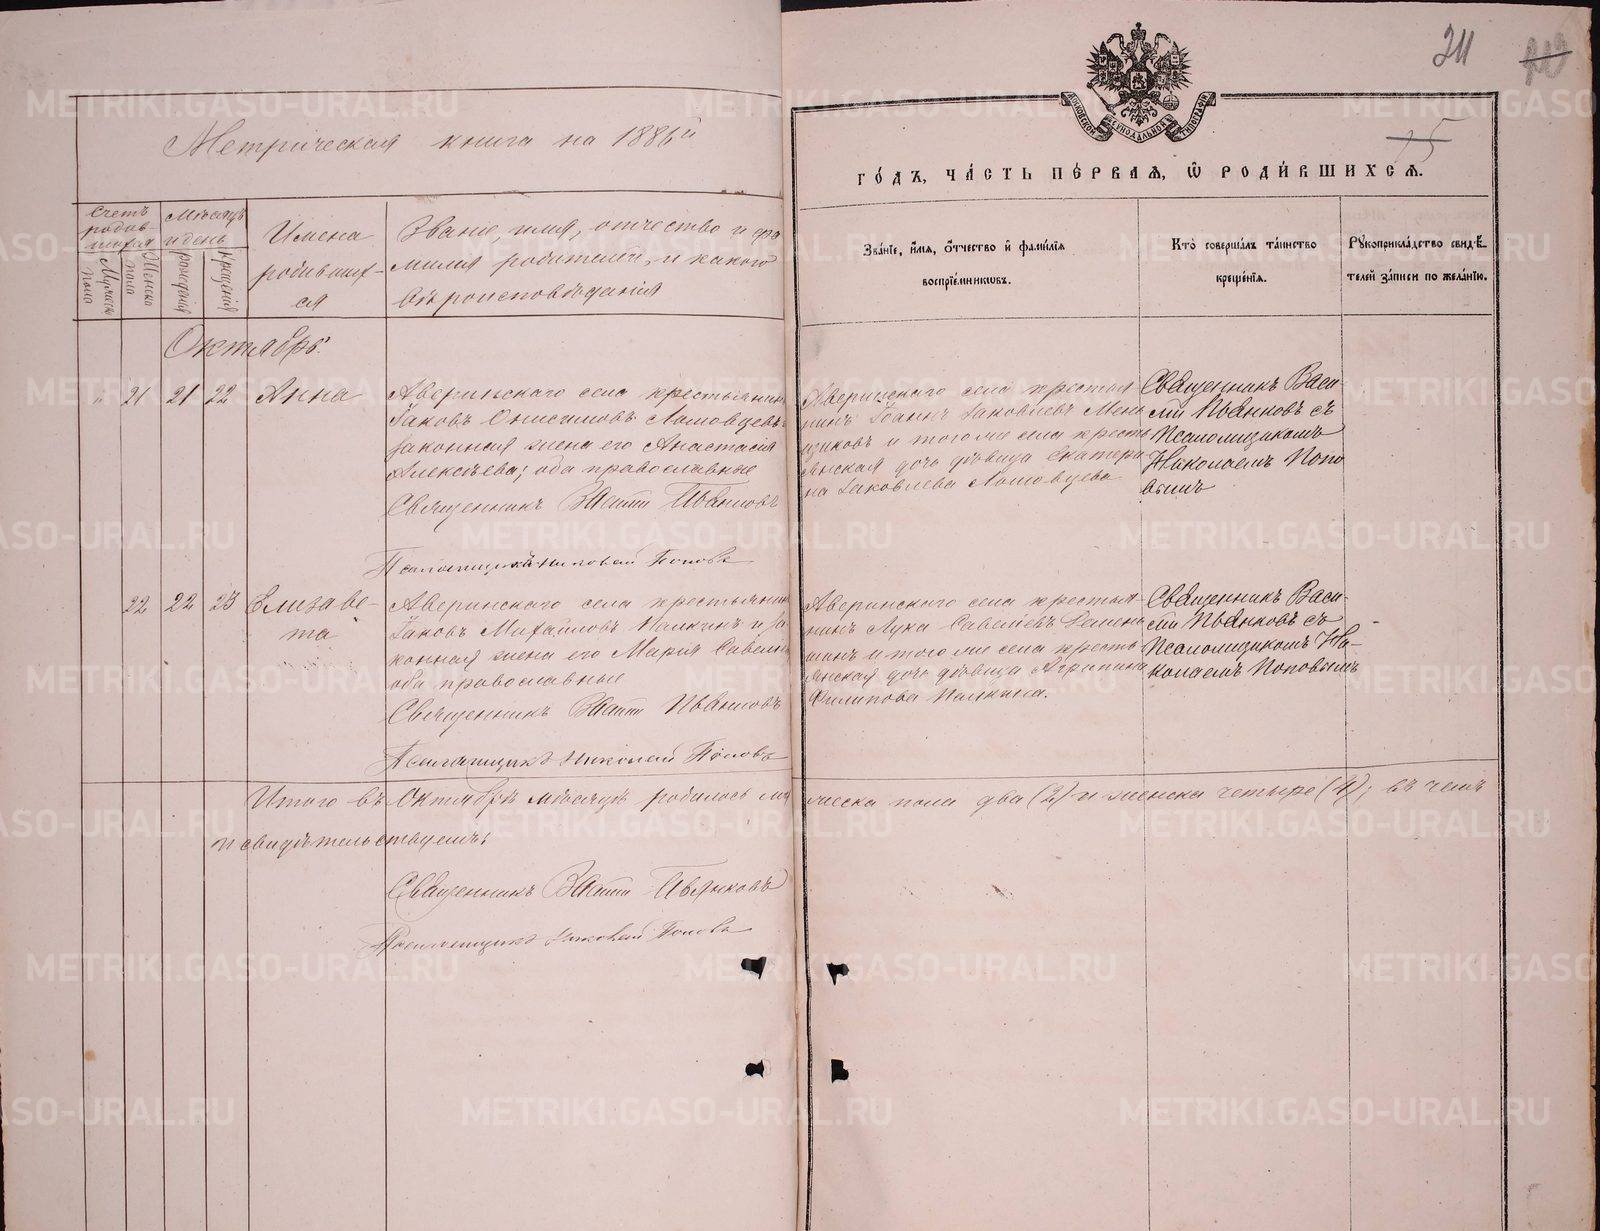 211
МОСКОВСКОЙ СѴНОДАЛЬНОЙ ТИПОГРАФІИ
15
Метрическая книга на 1886й
го́дъ, ча́сть пе́рвая, ѡ҆ роди́вшихся.
Счетъ родив-
шихся
Мужеска пола
Женска пола
Мѣсяцъ
и день
рожденія
крещенія
Имена
родивших-
ся
Званіе, имя, отчество и фа
милія родителей, и какого
вѣроисповѣданія
Зва́ніе, и҆́мѧ, ѻ҆́тчество и҆ фами́лїѧ
воспрїе́мниковъ.
Кто̀ соверша́лъ та́инство
креще́нїѧ.
Рꙋкоприкла́дство свидѣ́-
телей за́писи по жела́нїю.
Октябрь.
" 21 21 22 Анна
Аверинскаго села крестьянин
Іаковъ Онисимовъ Ломовцевъ
законная жена его Анастасія
Алексѣева; оба православные
Священникъ Василій Пьянковъ
Псаломщикъ Николай Поповъ
Аверинскаго села крестья-
нинъ Іоаннъ Іаковлевъ Мень
щиковъ и того же села кресть
янская дочь дѣвица Екатери
на Іаковлева Ломовцева
Священникъ Васи-
лій Пьянковъ съ
Псаломщикомъ
Николаемъ Попо
вымъ
22 22 23 Елизаве-
та
Аверинскаго села крестьянин
Іаковъ Михайловъ Палкинъ и за
конная жена его Марія Савельи
оба православные
Священникъ Василій Пьянковъ
Псаломщикъ Николай Поповъ
Аверинскаго села крестья-
нинъ Лука Савельевъ
и того же села кресть
янская дочь дѣвица Агрипина
Филипова Палкина.
Священникъ Васи-
лій Пьянковъ съ
Псаломщикомъ Ни-
колаемъ Поповымъ
Итого въ Октябрѣ мѣсяцѣ родилось му
жеска пола два (2) и женска четыре (4); въ чемъ
и свидѣтельствуемъ:
Священникъ Василій Пьянковъ
Псаломщикъ Николай Поповъ
METRIKI.GASO-URAL.RU